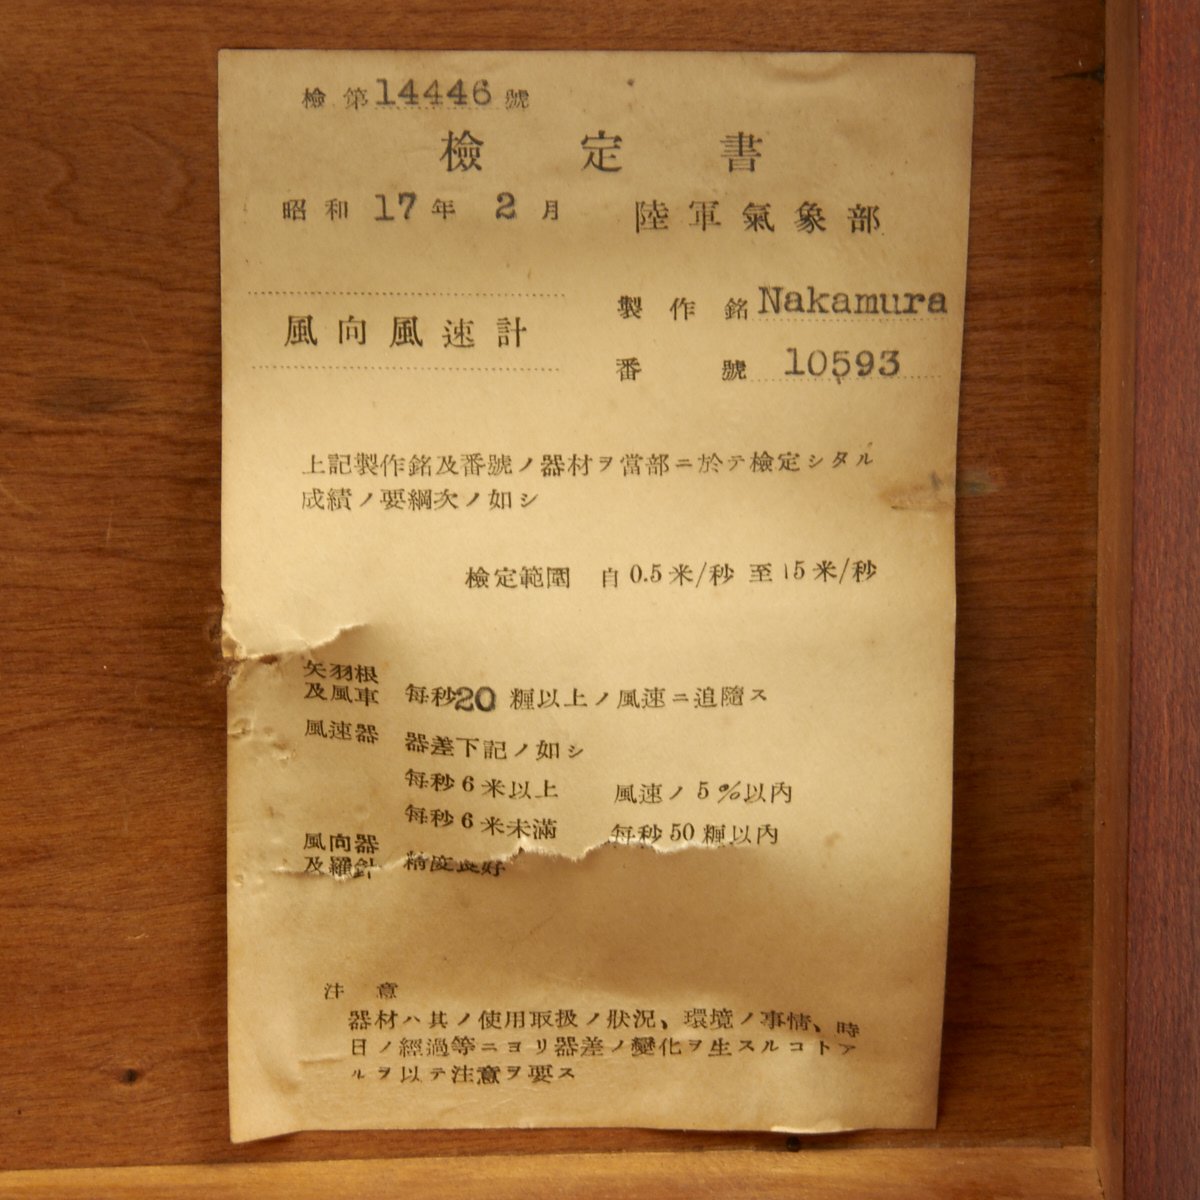 檢第14446號
檢定書
昭和17年2月 陸軍氣象部
製作銘Nakamura
風向風速計
番號10593
上記製作銘及番號ノ器材ヲ當部ニ於テ檢定シタル
成績ノ要綱次ノ如シ
檢定範圍 自0.5米/秒 至15米/秒
矢羽根
及風車 每秒20糎以上ノ風速ニ追隨ス
風速器 器差下記ノ如シ
每秒6米以上 風速ノ5%以內
每秒6米未滿 每秒50糎以內
風向器
及羅針 精度良好
注意
器材ハ其ノ使用取扱ノ狀況、環境ノ事情、時
日ノ經過等ニヨリ器差ノ變化ヲ生スルコトア
ルヲ以テ注意ヲ要ス